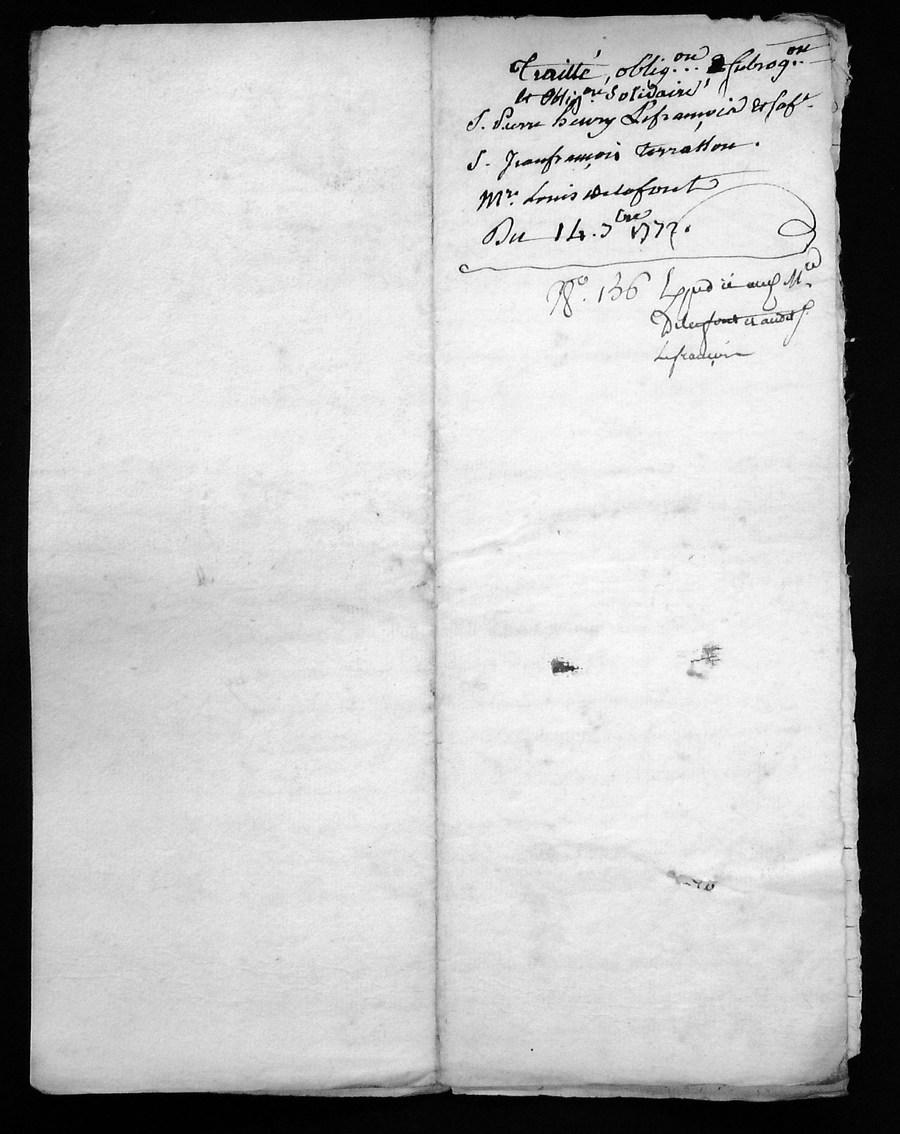 Traitté, oblig.on & subrog.on
et oblig.on solidaire
S. Pierre henry Lefrançois et sa fe.
S. Jeanfrançois terrasson.
Mre. Louis Delafont
Du 14. 7bre 1777.
No. 136 Expedié aud. Mre
Delafont et audit S.
Lefrançois